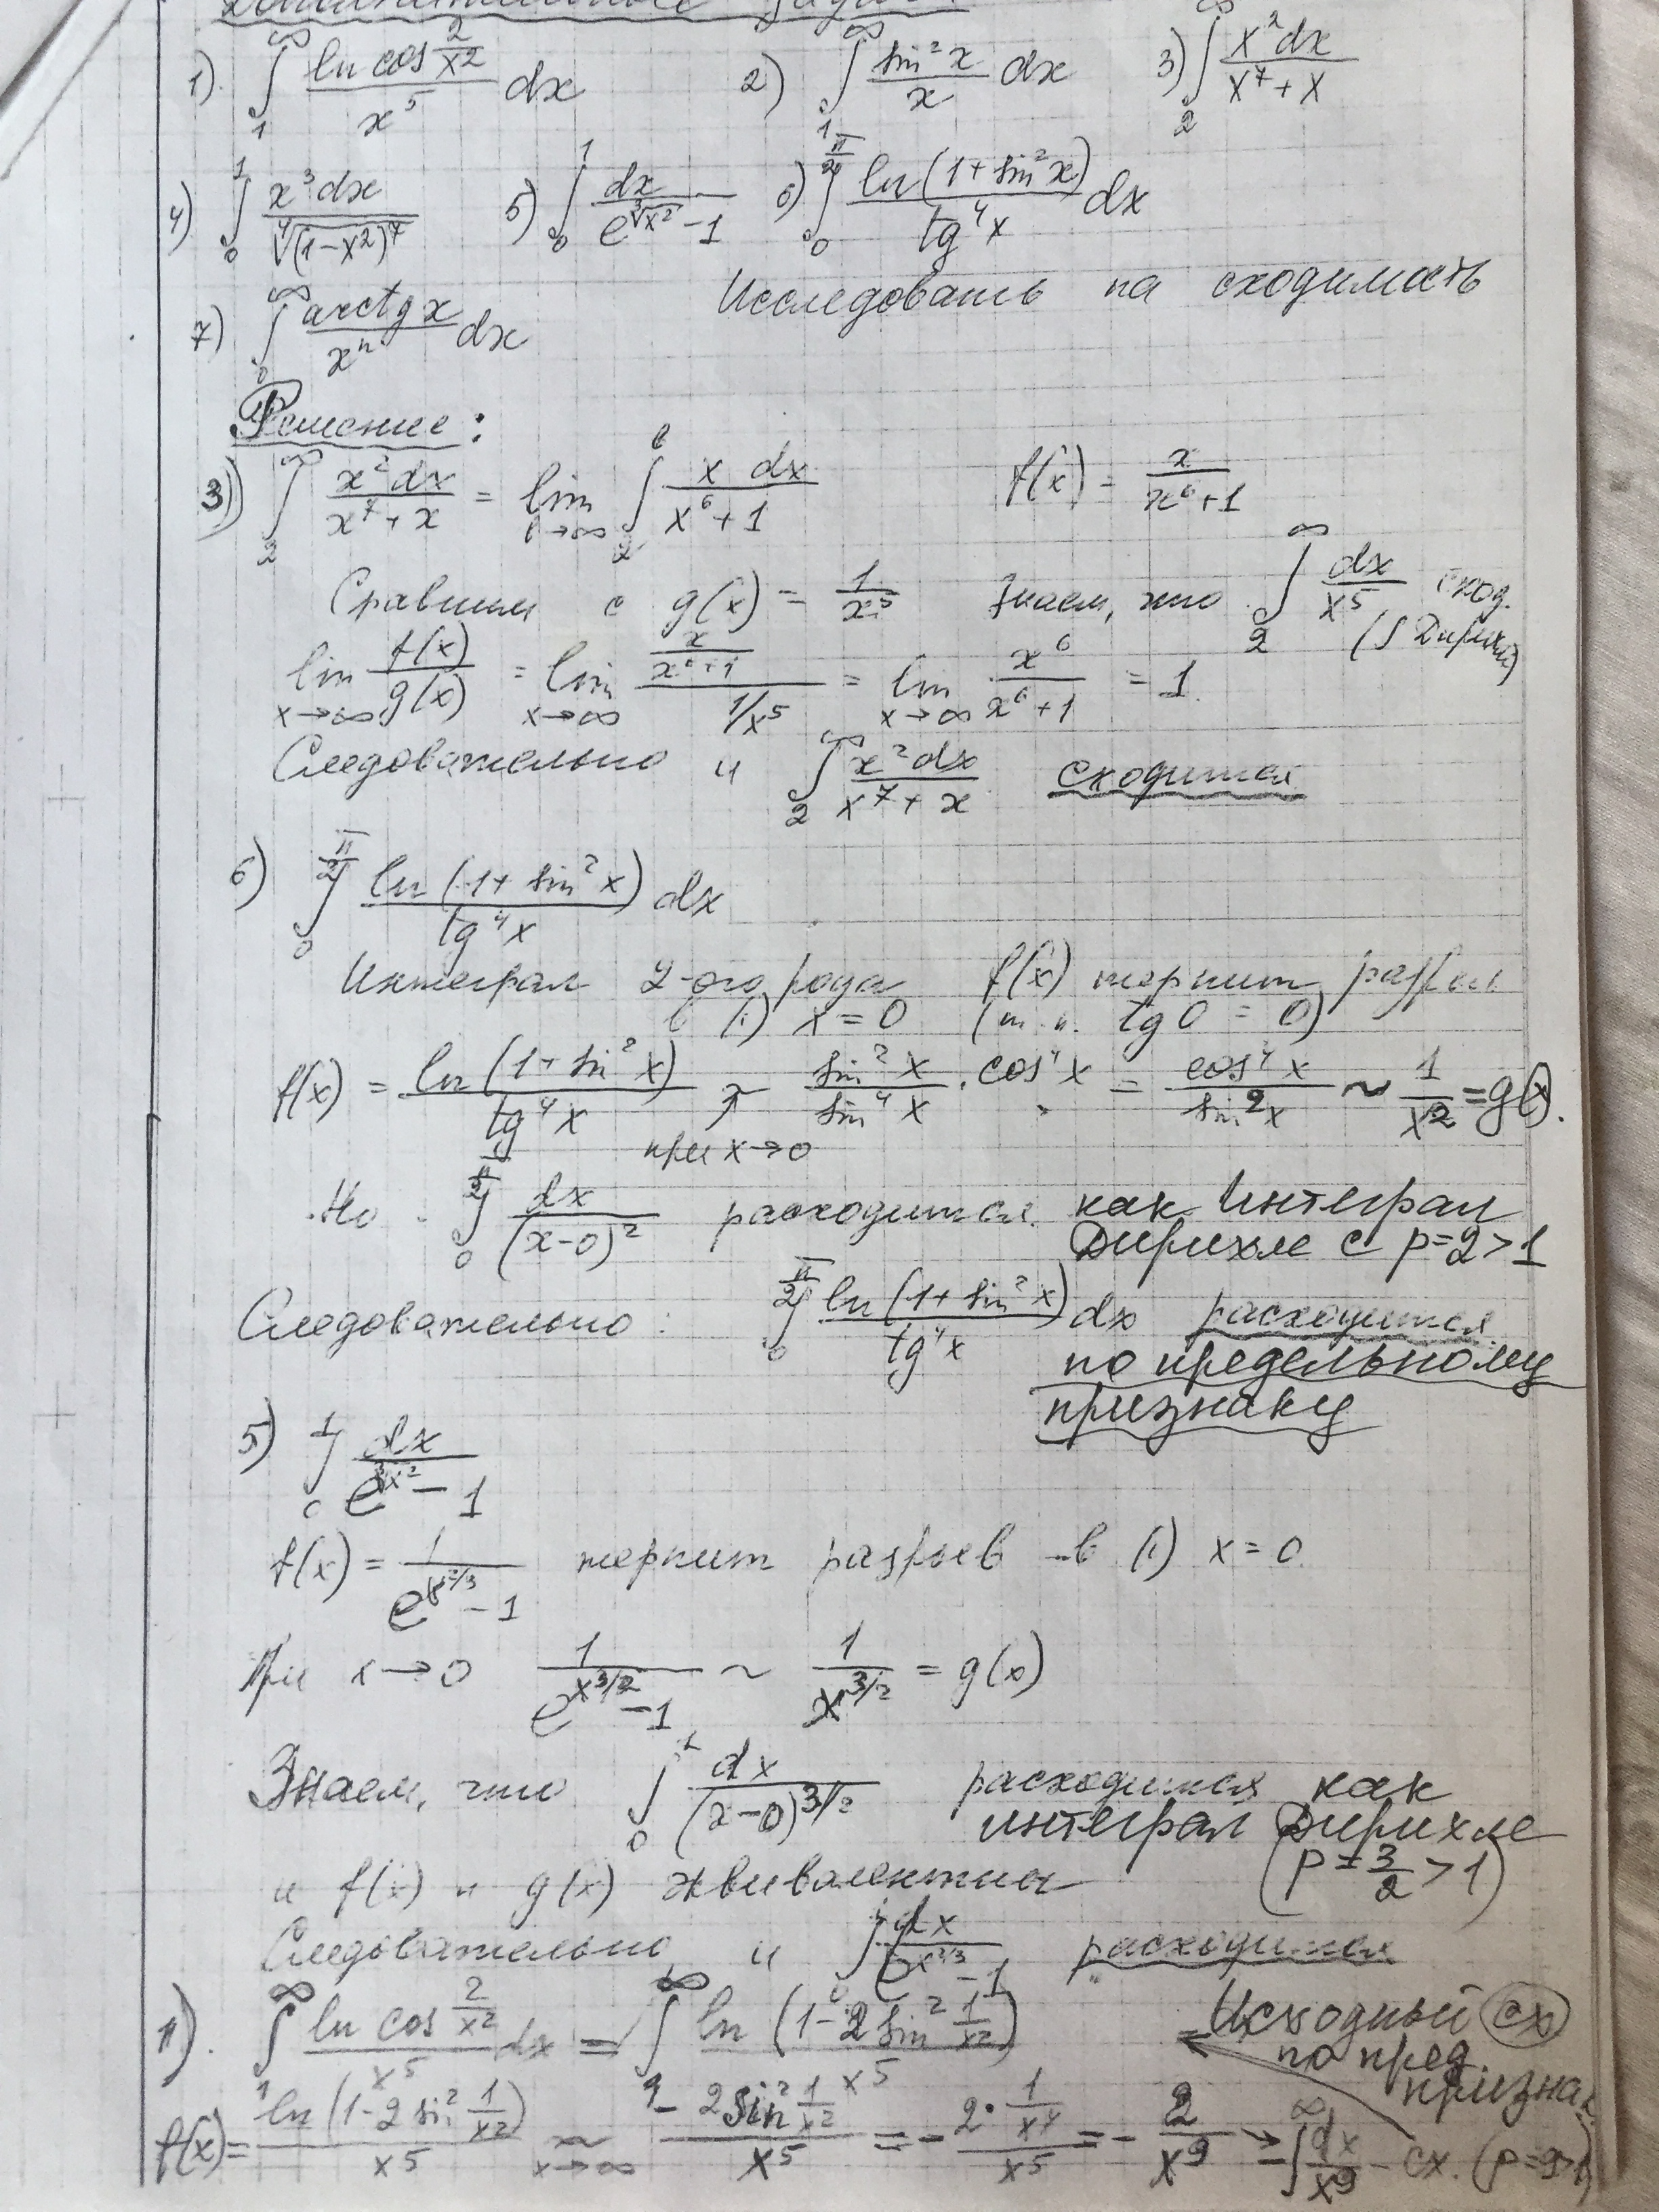 1). ∫₁^∞ (ln cos 2/x²)/x⁵ dx 2) ∫₁^∞ (sin²x)/x dx 3) ∫₂^∞ (x²dx)/(x⁷+x)
4) ∫₀^1 (x³dx)/⁴√(1-x²)⁷ 5) ∫₀^1 dx/(e^(³√x²) -1) 6) ∫₀^(π/2) ln(1+sin²x)/tg⁴x dx
Исследовать на сходимость
7) ∫₀^∞ (arctg x)/xⁿ dx
Решение:
3) ∫₂^∞ (x²dx)/(x⁷+x) = lim_(b→∞) ∫₂^b (x dx)/(x⁶+1) f(x) = x/(x⁶+1)
Сравним с g(x) = 1/x⁵ Знаем, что ∫₂^∞ dx/x⁵ сход.
(∫ Дирихле)
lim_(x→∞) f(x)/g(x) = lim_(x→∞) (x/(x⁶+1))/(1/x⁵) = lim_(x→∞) x⁶/(x⁶+1) = 1.
Следовательно и ∫₂^∞ (x²dx)/(x⁷+x) сходится
6) ∫₀^(π/2) ln(1+sin²x)/tg⁴x dx
Интеграл 2-ого рода f(x) терпит разрыв
в (·) x = 0 (т.к. tg 0 = 0)
f(x) = ln(1+sin²x)/tg⁴x ~ sin²x/sin⁴x · cos⁴x = cos⁴x/sin²x ~ 1/x² = g(x).
при x→0
Но ∫₀^(π/2) dx/(x-0)² расходится как Интеграл
Дирихле с p=2>1
Следовательно: ∫₀^(π/2) ln(1+sin²x)/tg⁴x dx расходится
по предельному
признаку
5) ∫₀^1 dx/(e^(³√x²) - 1)
f(x) = 1/(e^(x^(2/3)) - 1) терпит разрыв в (·) x = 0
При x→0 1/(e^(x^(3/2)) - 1) ~ 1/x^(3/2) = g(x)
Знаем, что ∫₀^1 dx/(x-0)^(3/2) расходится как
интеграл Дирихле
(p = 3/2 > 1)
и f(x) и g(x) эквивалентны
Следовательно и ∫₀^1 dx/(e^(x^(2/3)) - 1) расходится
1). ∫₁^∞ (ln cos 2/x²)/x⁵ dx = ∫₁^∞ ln(1-2 sin² 1/x²)/x⁵
Исходный сх
по пред.
признак
f(x) = ln(1-2 sin² 1/x²)/x⁵ ~_(x→∞) (-2 sin² 1/x²)/x⁵ = -(2·1/x⁴)/x⁵ = -2/x⁹ → ∫^∞ dx/x⁹ - сх. (p=9>1)